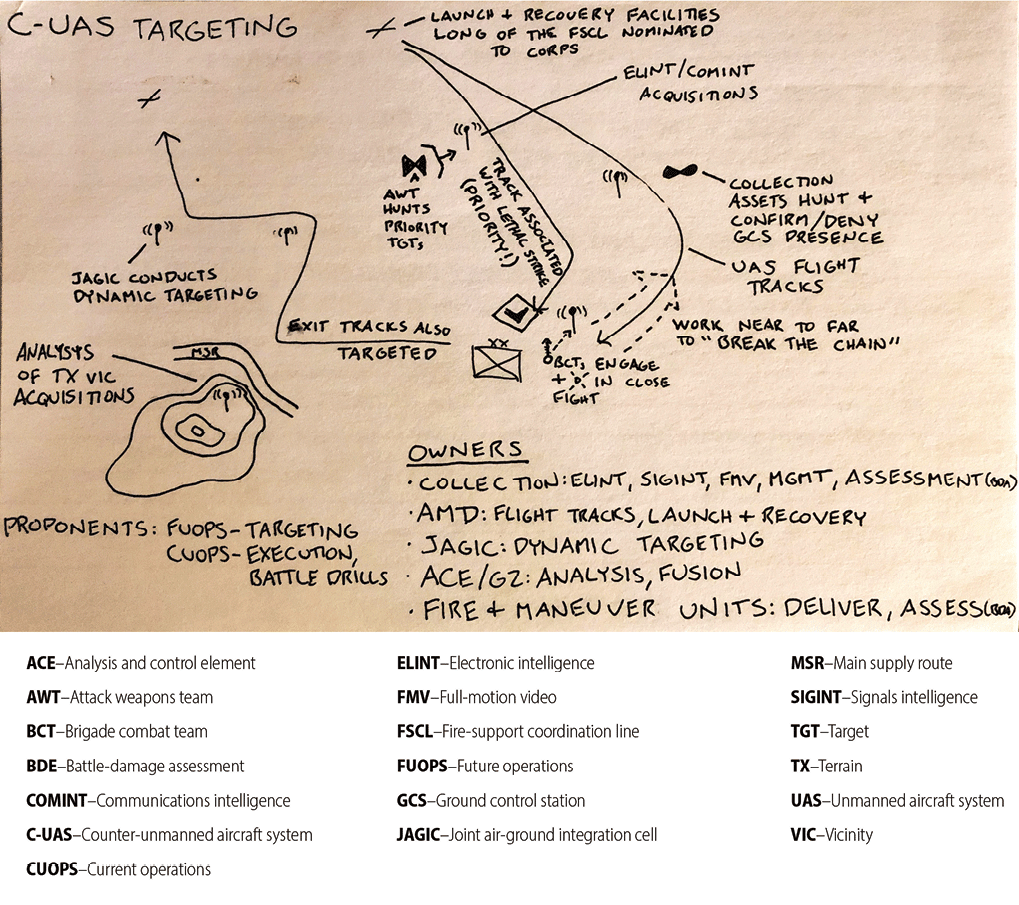 C-UAS TARGETING
LAUNCH + RECOVERY FACILITIES
LONG OF THE FSCL NOMINATED
TO CORPS
ELINT/COMINT
ACQUISITIONS
AWT
HUNTS
PRIORITY
TGTs
TRACK ASSOCIATED
WITH LETHAL STRIKE
(PRIORITY!)
COLLECTION
ASSETS HUNT +
CONFIRM/DENY
GCS PRESENCE
UAS FLIGHT
TRACKS
JAGIC CONDUCTS
DYNAMIC TARGETING
EXIT TRACKS ALSO
TARGETED
WORK NEAR TO FAR
TO "BREAK THE CHAIN"
XX
BCTs ENGAGE
+ IN CLOSE
FIGHT
ANALYSIS
OF TX VIC
ACQUISITIONS
MSR
OWNERS
· COLLECTION: ELINT, SIGINT, FMV, MGMT, ASSESSMENT (BDA)
· AMD: FLIGHT TRACKS, LAUNCH + RECOVERY
· JAGIC: DYNAMIC TARGETING
· ACE/G2: ANALYSIS, FUSION
· FIRE + MANEUVER UNITS: DELIVER, ASSESS (BDA)
PROPONENTS: FUOPS-TARGETING
CUOPS-EXECUTION,
BATTLE DRILLS
ACE–Analysis and control element
AWT–Attack weapons team
BCT–Brigade combat team
BDE–Battle-damage assessment
COMINT–Communications intelligence
C-UAS–Counter-unmanned aircraft system
CUOPS–Current operations
ELINT–Electronic intelligence
FMV–Full-motion video
FSCL–Fire-support coordination line
FUOPS–Future operations
GCS–Ground control station
JAGIC–Joint air-ground integration cell
MSR–Main supply route
SIGINT–Signals intelligence
TGT–Target
TX–Terrain
UAS–Unmanned aircraft system
VIC–Vicinity